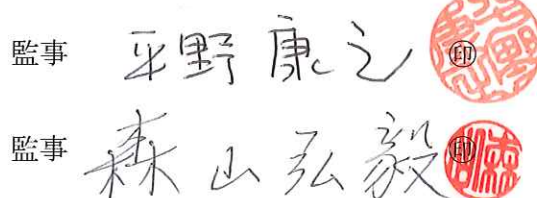 監事 平野康之 ㊞
監事 森山弘毅 ㊞